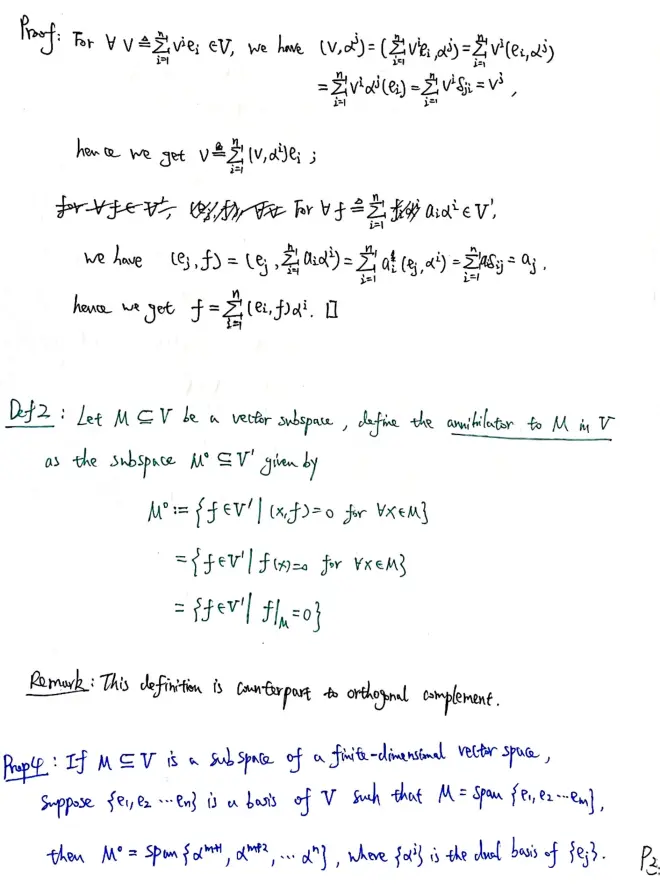 Proof: For ∀ v ≜ ∑_{i=1}^n v^i e_i ∈ V, we have (v, α^j) = (∑_{i=1}^n v^i e_i, α^j) = ∑_{i=1}^n v^i (e_i, α^j)
= ∑_{i=1}^n v^i α^j(e_i) = ∑_{i=1}^n v^i δ_{ji} = v^j ,
hence we get v ≜ ∑_{i=1}^n (v, α^i) e_i ;
For ∀ f ≜ ∑_{i=1}^n a_i α^i ∈ V',
we have (e_j, f) = (e_j, ∑_{i=1}^n a_i α^i) = ∑_{i=1}^n a_i (e_j, α^i) = ∑_{i=1}^n a_i δ_{ij} = a_j .
hence we get f = ∑_{i=1}^n (e_i, f) α^i. []
Def2 : Let M ⊆ V be a vector subspace, define the annihilator to M in V
as the subspace M° ⊆ V' given by
M° := {f ∈ V' | (x, f) = 0 for ∀x ∈ M}
= {f ∈ V' | f(x) = 0 for ∀x ∈ M}
= {f ∈ V' | f|_M = 0}
Remark : This definition is counterpart to orthogonal complement.
Prop4 : If M ⊆ V is a subspace of a finite-dimensional vector space,
suppose {e_1, e_2 ⋯ e_n} is a basis of V such that M = span {e_1, e_2 ⋯ e_m},
then M° = span {α^{m+1}, α^{m+2}, ⋯ α^n}, where {α^i} is the dual basis of {e_j}.
P2